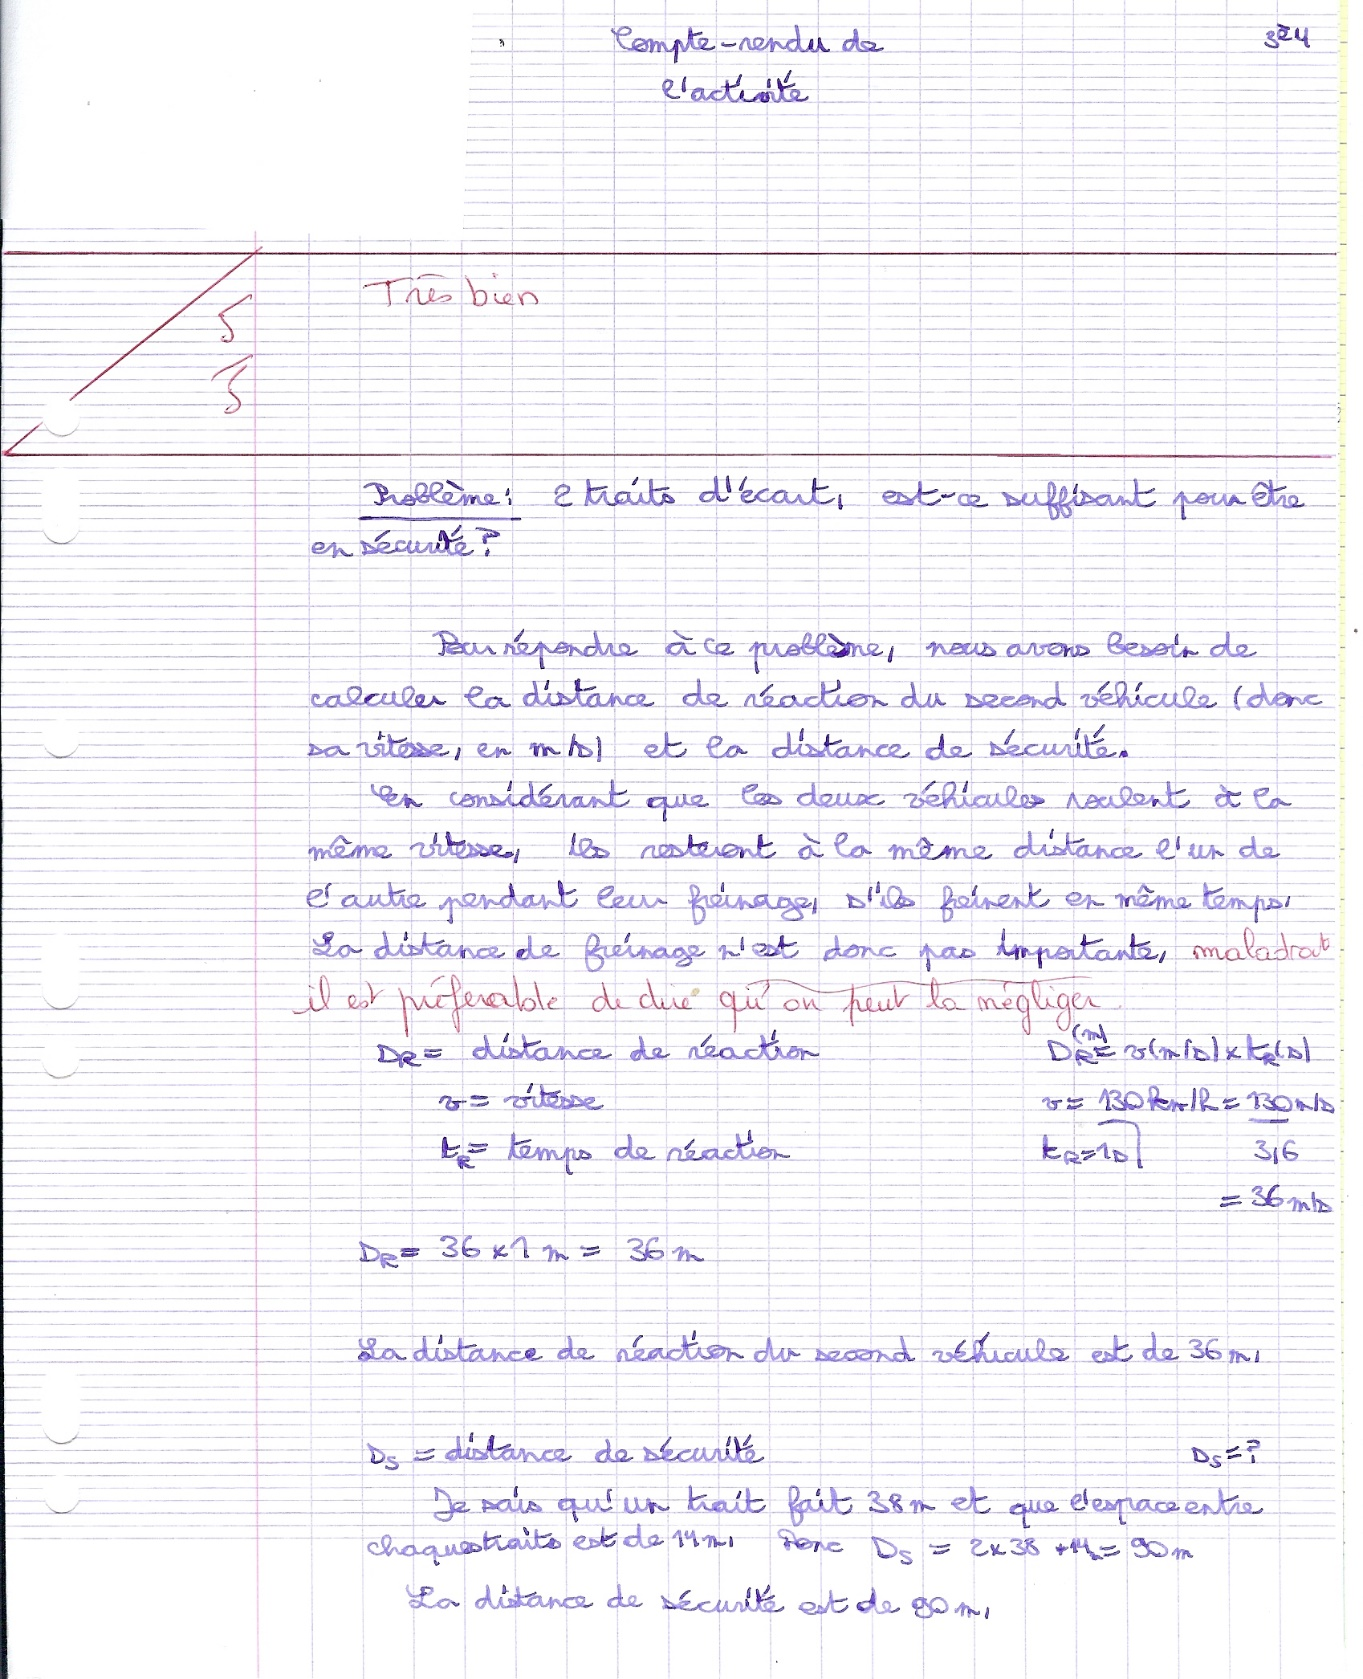 Compte-rendu de
3è4
l'activité
Très bien
5
5
Problème: 2 traits d'écart, est-ce suffisant pour être
en sécurité?
Pour répondre à ce problème, nous avons besoin de
calculer la distance de réaction du second véhicule (donc
sa vitesse, en m/s) et la distance de sécurité.
En considérant que les deux véhicules roulent à la
même vitesse, ils resteront à la même distance l'un de
l'autre pendant leur freinage, s'ils freinent en même temps.
La distance de freinage n'est donc pas importante, maladroit
il est préferable de dire qu'on peut la négliger.
DR = distance de réaction DR(m) = v(m/s) x tR(s)
v = vitesse v = 130 km/h = 130 m/s
tR = temps de réaction tR = 1s 3,6
= 36 m/s
DR = 36 x 1 m = 36 m
La distance de réaction du second véhicule est de 36 m.
DS = distance de sécurité DS = ?
Je sais qu'un trait fait 38 m et que l'espace entre
chaques traits est de 14 m. Donc DS = 2x38 +14 = 90 m
La distance de sécurité est de 90 m.